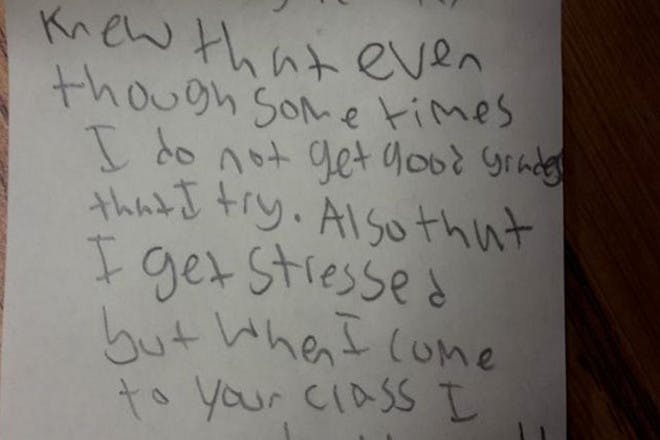 Knew that even
though some times
I do not get good grades
that I try. Also that
I get stressed
but when I come
to your class I